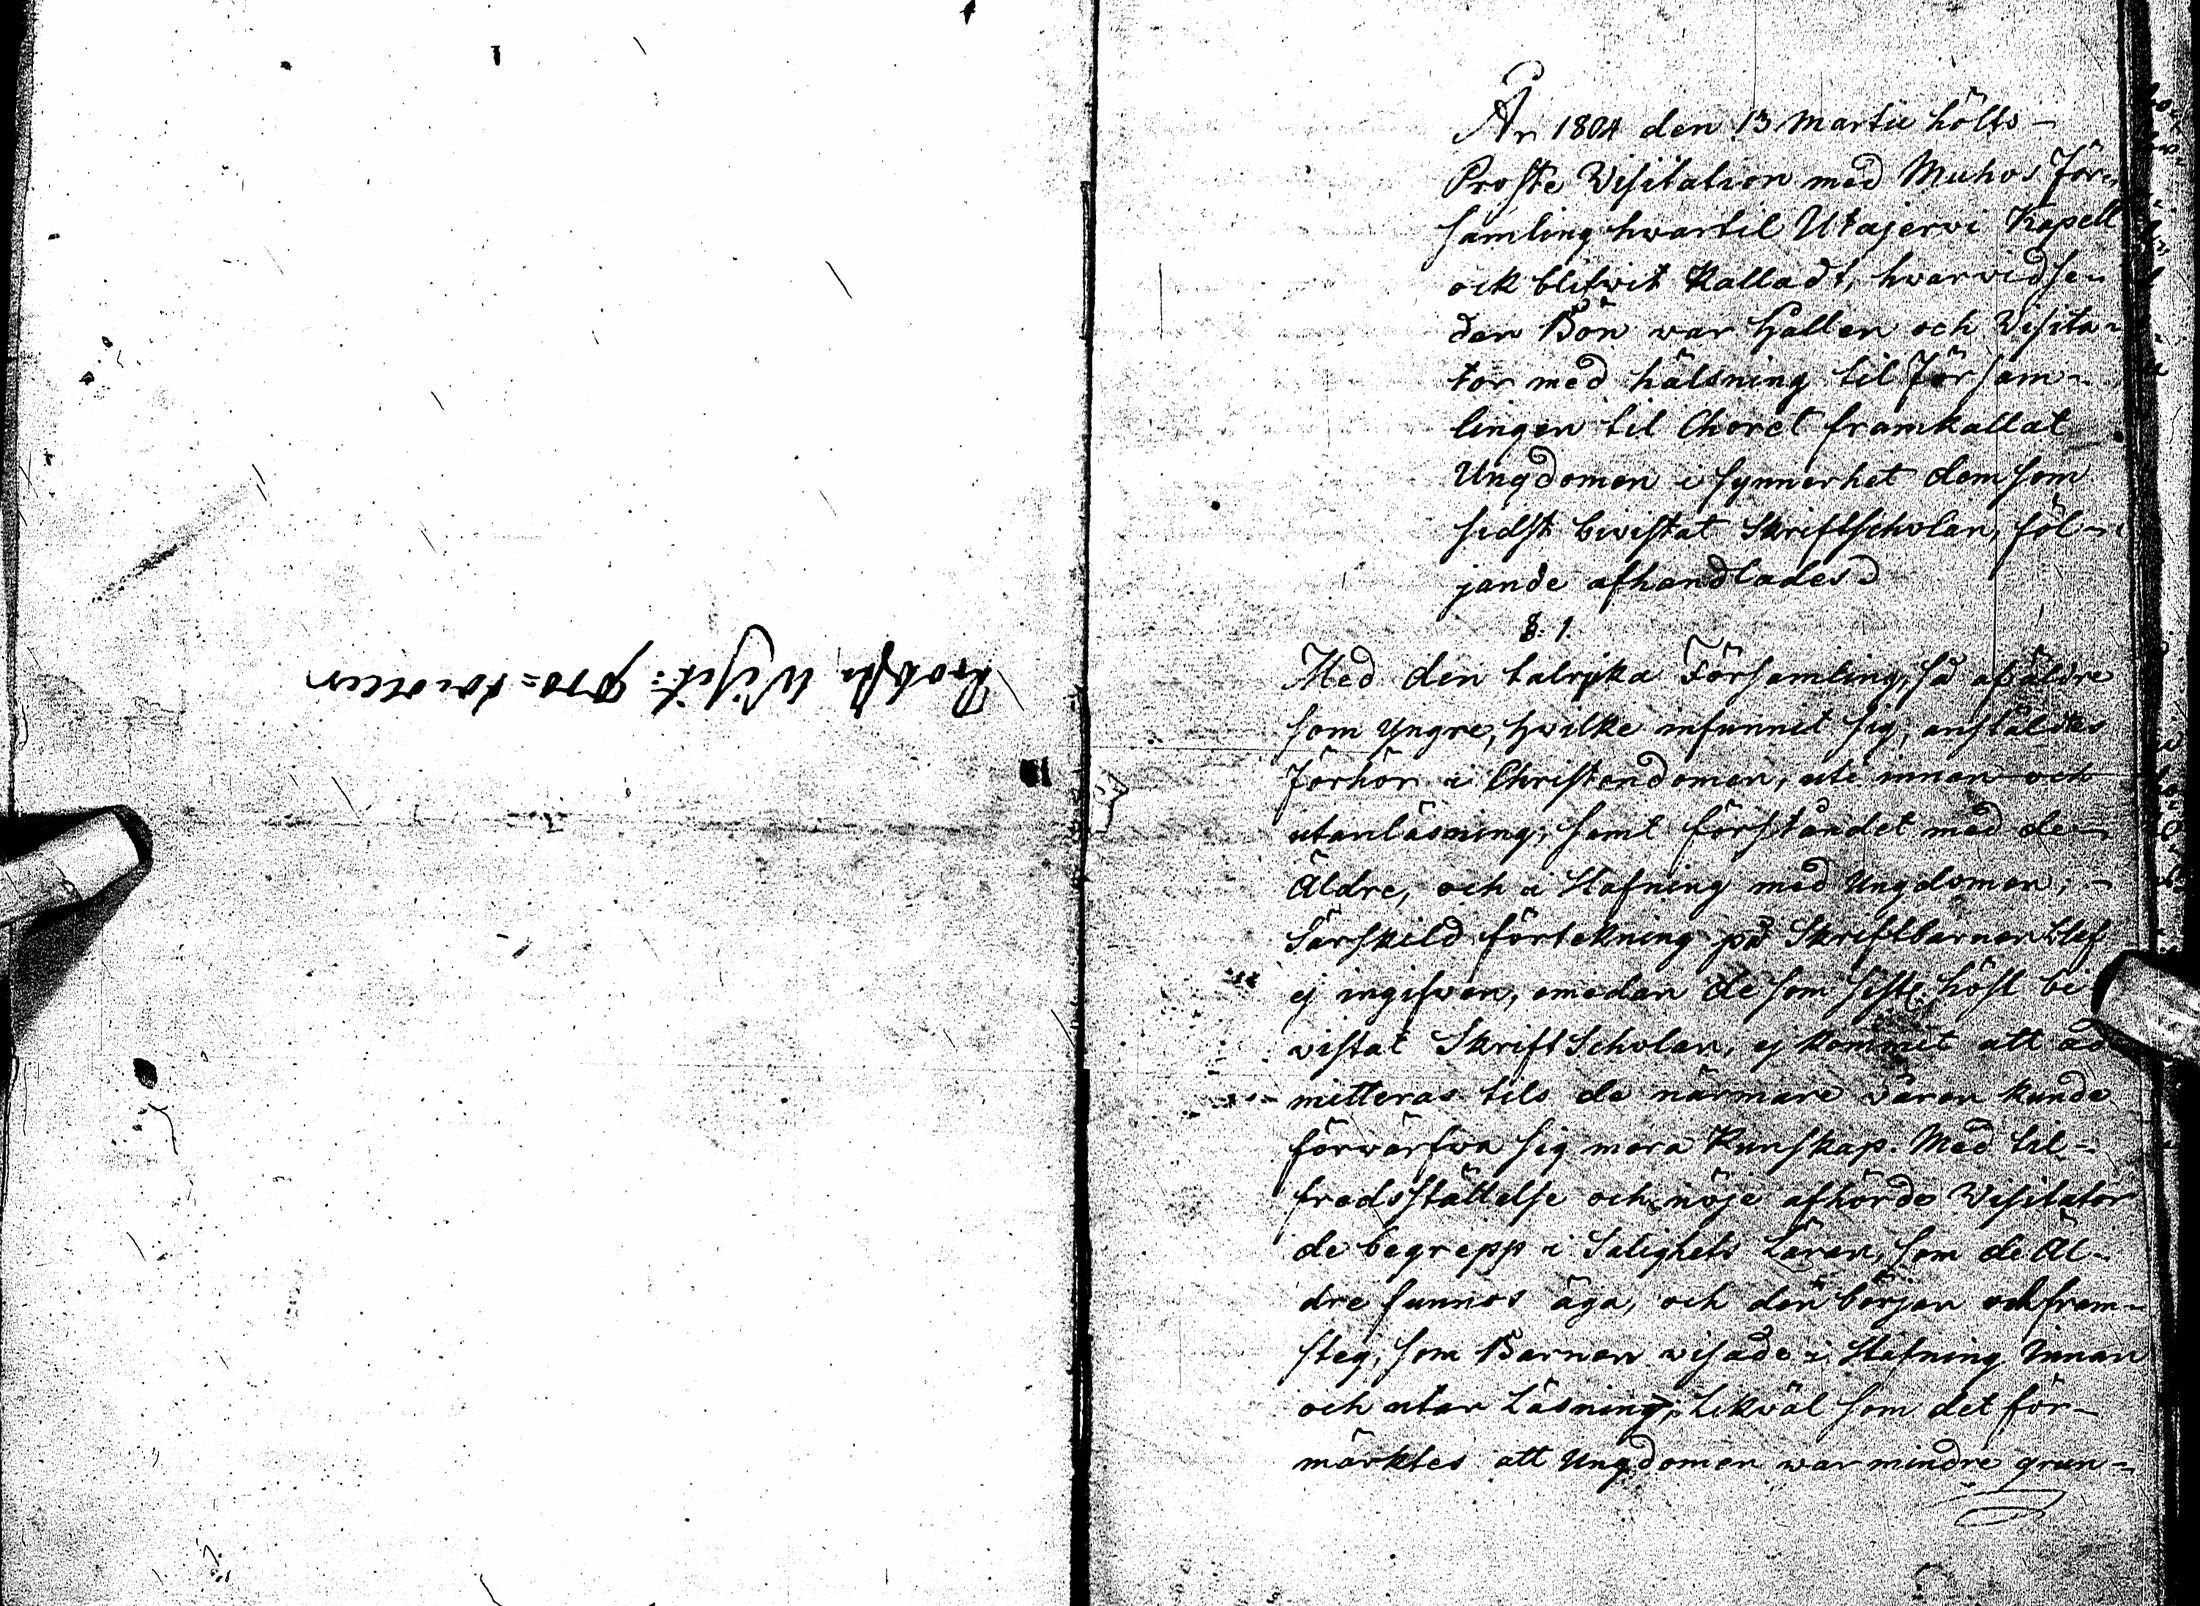 Probste Visit: pro-tocoller
År 1804 den 13 Martii hölts –
Proste Visitation med Muhos För-
samling hwartil Utajervi Kapell
ock blifwit kalladt, hwarvid se-
dan Bön war hållen och Visita-
tor med hälsning til Försam-
lingen til Choret framkallat
Ungdomen i synnerhet dem som
sidst bivistat Skriftscholan, föl-
jande afhandlades
§. 1.
Med den talrika Församling, så af äldre
som yngre, hwilke infunnit sig, anstäldes
Förhör i Christendomen, uti innan och
utanläsning, samt förståndet med de –
Äldre, och i Stafning med Ungdomen; –
Särskild förtekning på Skriftbarnen blef
ej ingifwen, emedan de som siste höst bi
vistat SkriftScholan, ej kommit att ad
mitteras tils de närmare våren kunde
förwärfwa sig mera Kunskap. Med til-
fredsställelse och nöje afhörde Visitator
de begrepp i Salighets Läran, som de Äl-
dre funnos äga, och den början och fram-
steg, som Barnen wisade i Stafning Innan
och utan Läsning, Likväl som det för-
märktes att Ungdomen war mindre grun-